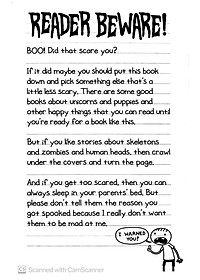 READER BEWARE!
BOO! Did that scare you?
If it did maybe you should put this book
down and pick something else that's a
little less scary. There are some good
books about unicorns and puppies and
other happy things that you can read until
you're ready for a book like this.
But if you like stories about skeletons
and zombies and human heads, then crawl
under the covers and turn the page.
And if you get too scared, then you can
always sleep in your parents' bed. But
please don't tell them the reason you
got spooked because I really don't want
them to be mad at me.
I WARNED
YOU!
CS Scanned with CamScanner